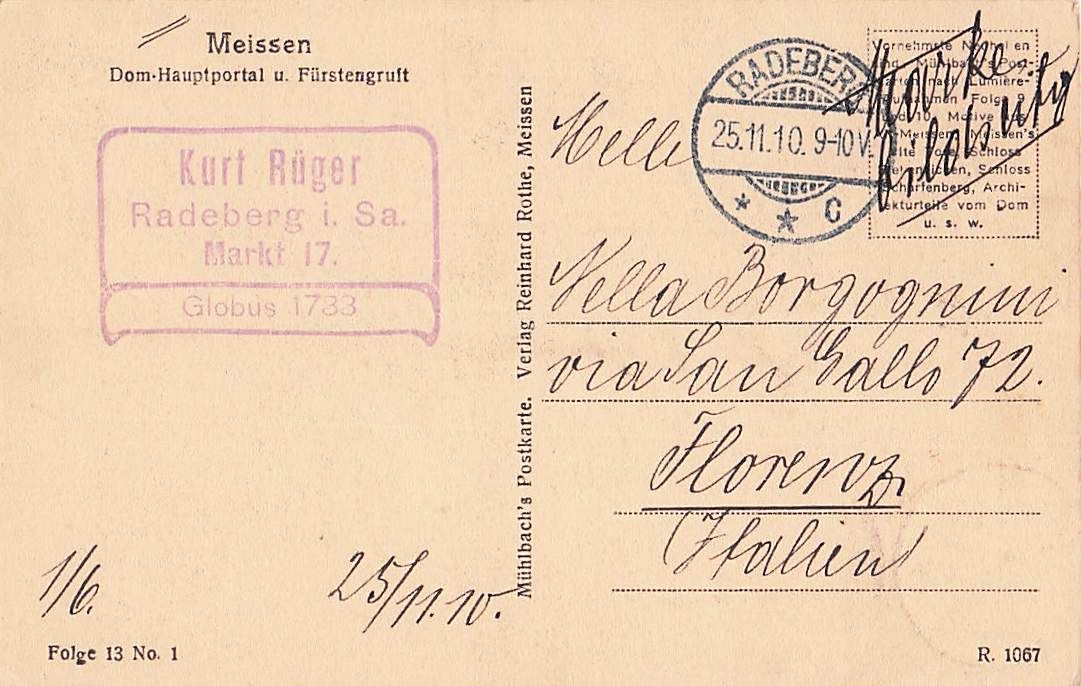 Meissen
Dom-Hauptportal u. Fürstengruft
Kurt Rüger
Radeberg i. Sa.
Markt 17.
Globus 1733
1/6.
25/11.10.
Folge 13 No. 1
Mühlbach's Postkarte. Verlag Reinhard Rothe, Meissen
RADEBERG
25.11.10. 9-10V.
* * C
Marke
Vornehmste
Mühlbach's Post-
nach Lumière-
Folge 9
10. Motive
Meissen, Meissen's
Schloss
Schloss
Scharfenberg, Archi-
tekturteile vom Dom
u. s. w.
Melle
Nella Borgognini
via San Gallo 72.
Florenz
(Italien)
R. 1067